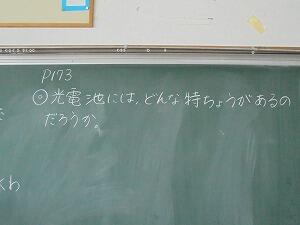 P173
◎光電池には,どんな特ちょうがあるの
だろうか。
くわ